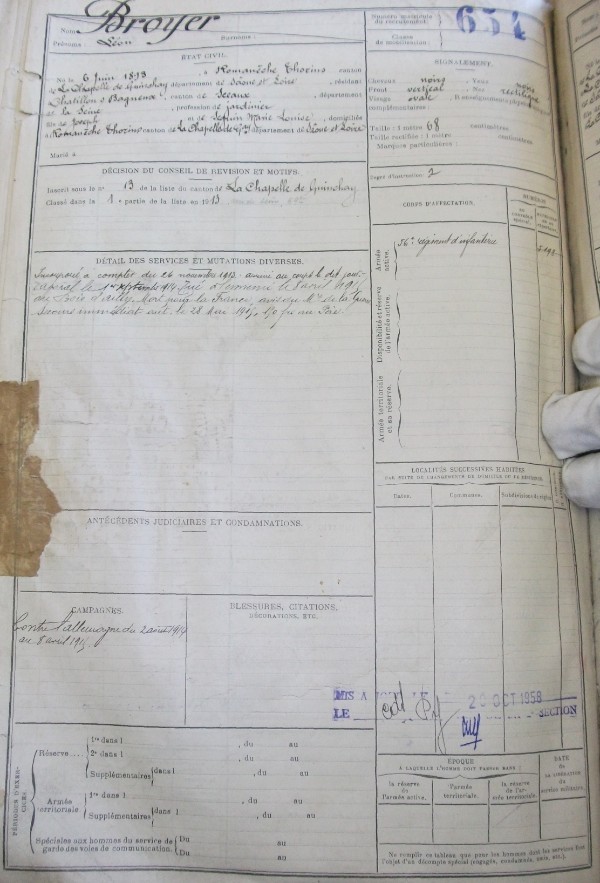 Nom : Broyer
Prénoms : Léon Surnoms :
Numéro matricule
du recrutement : 654
Classe
de mobilisation
ÉTAT CIVIL.
Né le 6 Juin 1893, à Romanèche Thorins canton
de La Chapelle de Guinchay, département de Saône et Loire, résidant
Chatillon s/ Bagneux, canton de Sceaux, département
de la Seine, profession de jardinier
fils de Joseph et de Marie Louise, domiciliés
à Romanèche Thorins canton de La Chapelle de Gay département de Saône et Loire
Marié à
SIGNALEMENT.
Cheveux noirs Yeux noirs
Front vertical Nez rectiligne
Visage ovale Renseignements physionomiques
complémentaires :
Taille : 1 mètre 68 centimètres.
Taille rectifiée : 1 mètre centimètres.
Marques particulières :
Degré d'instruction : 2
DÉCISION DU CONSEIL DE RÉVISION ET MOTIFS.
Inscrit sous le n° 13 de la liste du canton de La Chapelle de Guinchay
Classé dans la 1e partie de la liste en 1913
CORPS D'AFFECTATION.
Armée
active.
56e régiment d'infanterie
Disponibilité et réserve
de l'armée active.
Armée territoriale
et sa réserve.
DÉTAIL DES SERVICES ET MUTATIONS DIVERSES.
Incorporé à compter du 26 novembre 1913. arrivé au corps le dit jour.
Caporal le 1er 1914. Tué à l'ennemi le 8 avril 1915
au bois d'Ailly. Mort pour la France, avis du Mre de la Guerre
Secours immédiat aut. le 28 1915, 150 frs au Père.
LOCALITÉS SUCCESSIVES HABITÉES
PAR SUITE DE CHANGEMENTS DE DOMICILE OU DE RÉSIDENCE.
Dates. Communes. Subdivisions de région.
ANTÉCÉDENTS JUDICIAIRES ET CONDAMNATIONS.
CAMPAGNES.
Contre l'Allemagne du 2 août 1914
au 8 avril 1915.
BLESSURES, CITATIONS,
DÉCORATIONS, ETC.
MIS A JOUR LE
LE 20 OCT 1958
SECTION
PÉRIODES D'EXERCICES
Réserve....
1re dans l , du au
2e dans l , du au
Supplémentaires dans l , du au
Armée
territoriale
1re dans l , du au
Supplémentaires dans l , du au
Spéciales aux hommes du service de
garde des voies de communication.
Du au
Du au
ÉPOQUE
À LAQUELLE L'HOMME DOIT PASSER DANS :
la réserve
de l'armée active.
l'armée
territoriale.
la réserve
de l'armée territoriale.
DATE
de
LA LIBÉRATION
du
service militaire.
Ne remplir ce tableau que pour les hommes dont les services font
l'objet d'un décompte spécial (engagés, condamnés, omis, etc.).